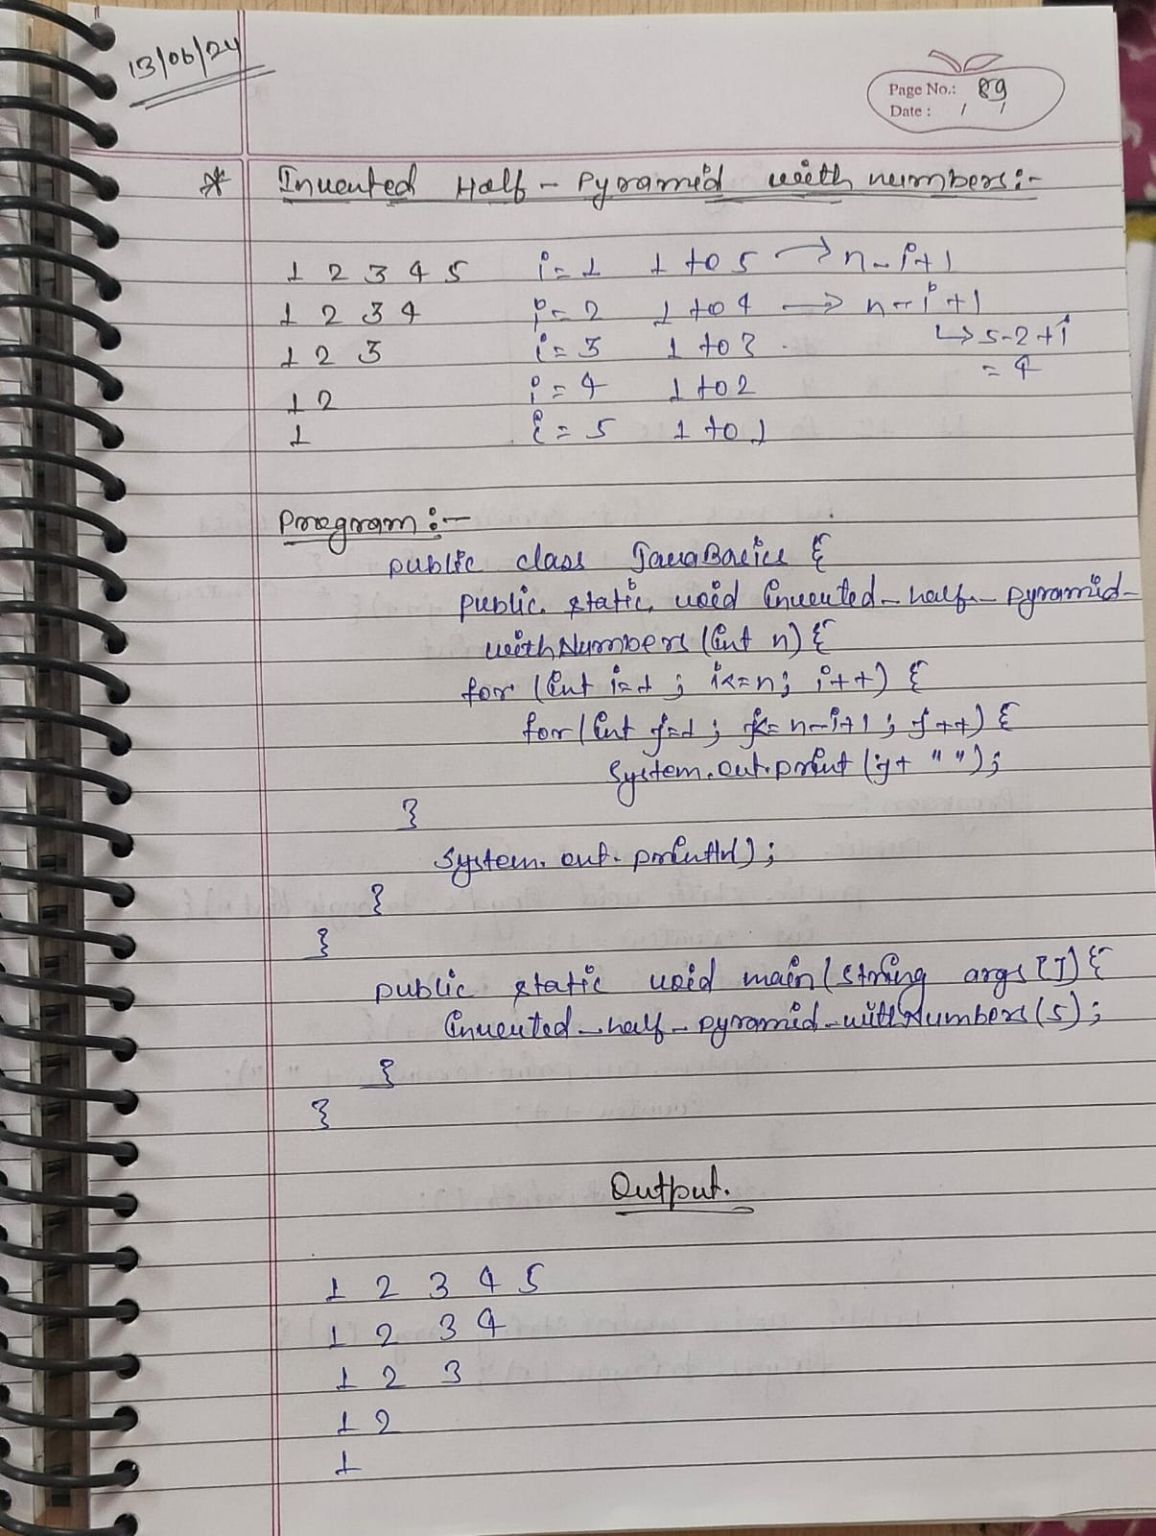 13/06/24
Page No.: 89
Date : / /
* Inverted Half - Pyramid with numbers:-
1 2 3 4 5 i=1 1 to 5 → n-i+1
1 2 3 4 i=2 1 to 4 → n-i+1
↳ 5-2+1
1 2 3 i=3 1 to 3
= 4
1 2 i=4 1 to 2
1 i=5 1 to 1
Program:-
public class JavaBasics {
public static void inverted_half_pyramid_
withNumbers (int n) {
for (int i=1 ; i<=n; i++) {
for (int j=1 ; j<= n-i+1 ; j++) {
System.out.print (j+ " ");
}
System.out.println();
}
}
public static void main (String args []) {
inverted_half_pyramid_withNumbers (5);
}
}
Output.
1 2 3 4 5
1 2 3 4
1 2 3
1 2
1